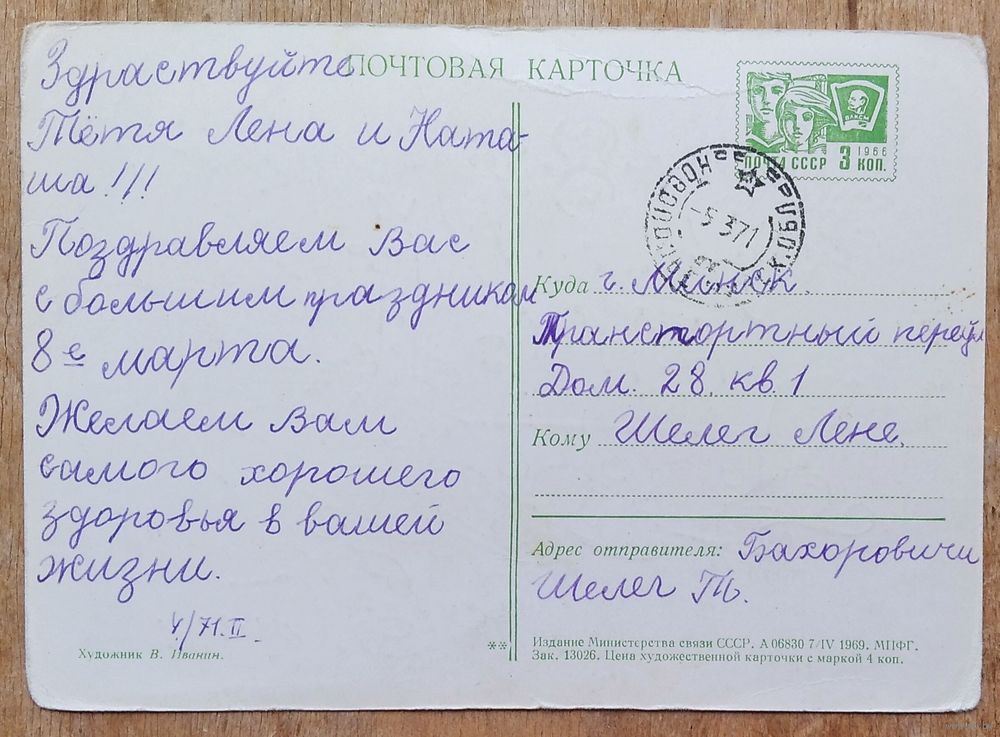 Здраствуйте
Тётя Лена и Ната-
ша!!!
Поздравляем Вас
с большим праздником
8е марта.
Желаем Вам
самого хорошего
здоровья в вашей
жизни.
4/71.II
Художник В. Иванин.
ПОЧТОВАЯ КАРТОЧКА
ВЛКСМ
1966
ПОЧТА СССР 3 КОП.
-5 3 71
Куда г. Минск
Транспортный переул
Дом. 28. кв. 1
Кому Шелег Лене.
Адрес отправителя: Бахоровичи
Шелег Т.
** Издание Министерства связи СССР. А 06830 7/IV 1969. МПФГ.
Зак. 13026. Цена художественной карточки с маркой 4 коп.